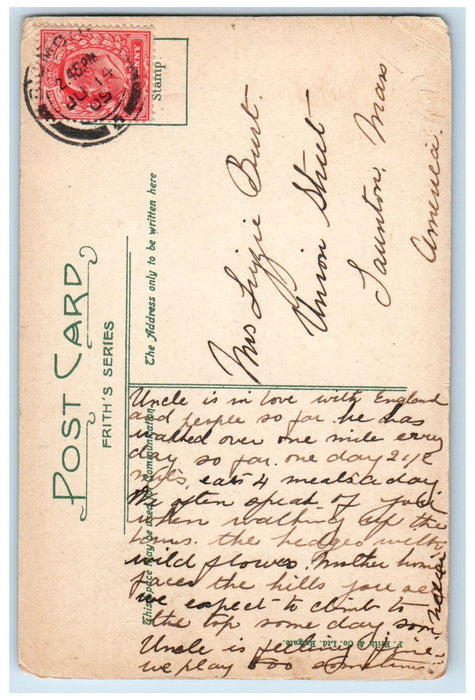 POST CARD
FRITH'S SERIES
The Address only to be written here
Stamp
This space may be used for communication
F. Frith & Co., Ltd. Reigate
PENNY
2.45PM
JU 14
09
Mrs Lizzie Burt.
Union Street
Taunton, Mass
America.
Uncle is in love with England
and people so far. he has
walked over one mile every
day so far. one day 2 1/2
miles, eats 4 meals a day
We often speak of you
when walking up the
lanes. the hedges with
wild flowers. Mother home
faces the hills you see
we expect to climb to
the top some day soon
Uncle is feeling fine
we play too sometimes